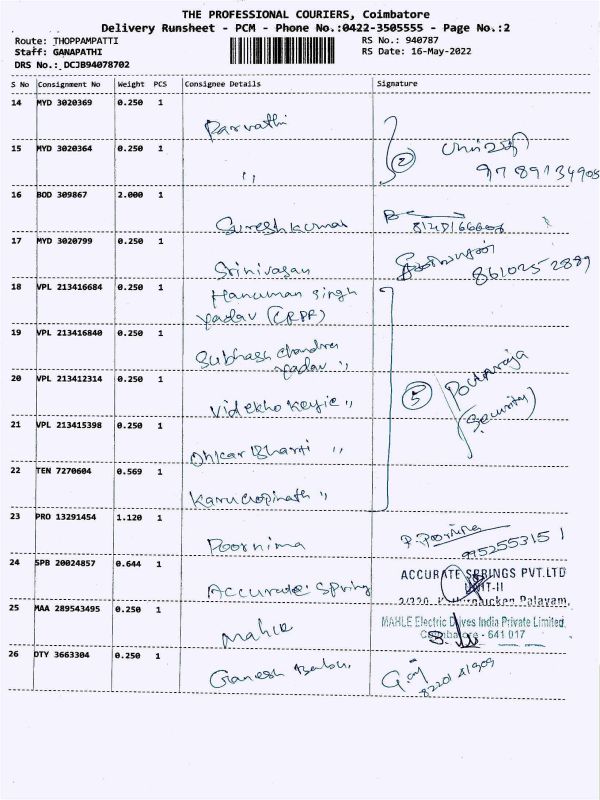 THE PROFESSIONAL COURIERS, Coimbatore
Delivery Runsheet - PCM - Phone No.:0422-3505555 - Page No.:2
Route: THOPPAMPATTI
RS No.: 940787
Staff: GANAPATHI
RS Date: 16-May-2022
DRS No.: DCJB94078702
S No Consignment No Weight PCS Consignee Details Signature
14 MYD 3020369 0.250 1
Parvathi
15 MYD 3020364 0.250 1
2
9789134905
"
16 BOD 309867 2.000 1
Sureshkumar
17 MYD 3020799 0.250 1
Srinivasan
861025 2889
18 VPL 213416684 0.250 1 Hanuman Singh
Yadav (CRPF)
19 VPL 213416840 0.250 1
Subhash Chandra
Yadav "
20 VPL 213412314 0.250 1
5
(Security)
21 VPL 213415398 0.250 1
22 TEN 7270604 0.569 1
23 PRO 13291454 1.120 1
Poornima
P. Poornima
24 SPB 20024857 0.644 1
Accurate Spring
ACCURATE SPRINGS PVT.LTD
UNIT-II
Palayam,
25 MAA 289543495 0.250 1
Mahle
MAHLE Electric Drives India Private Limited
Coimbatore - 641 017
26 DTY 3663304 0.250 1
Ganesh Babu